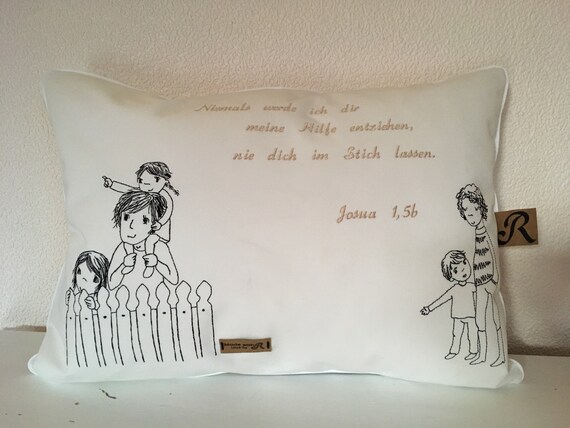 Niemals werde ich dir
meine Hilfe entziehen,
nie dich im Stich lassen.
Josua 1,5b
R
R